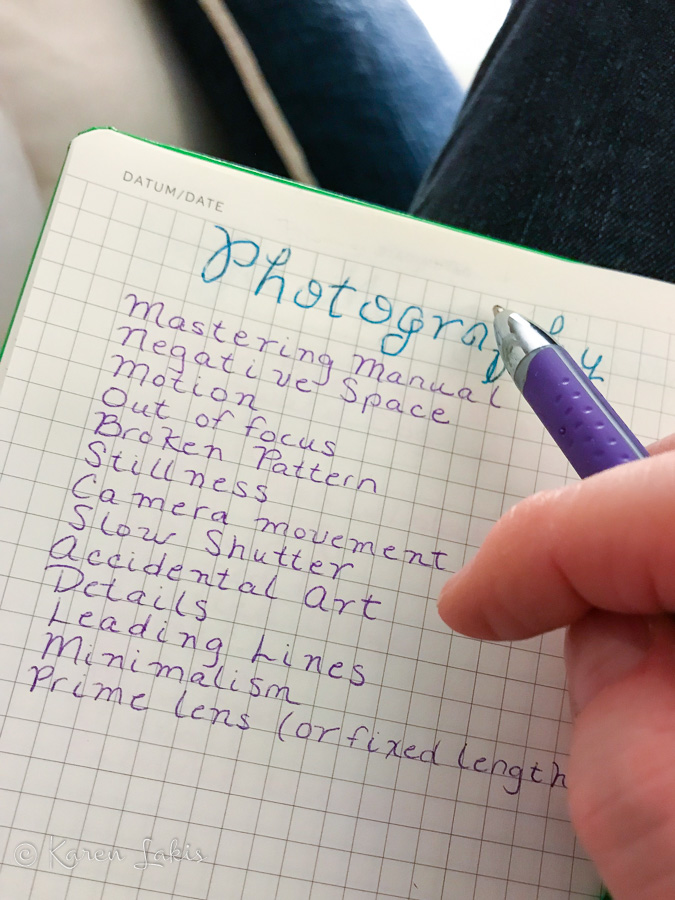 DATUM/DATE
Photography
Mastering Manual
Negative Space
Motion
Out of focus
Broken Pattern
Stillness
Camera movement
Slow Shutter
Accidental Art
Details
Leading Lines
Minimalism
Prime lens (or fixed length
© Karen Lakis